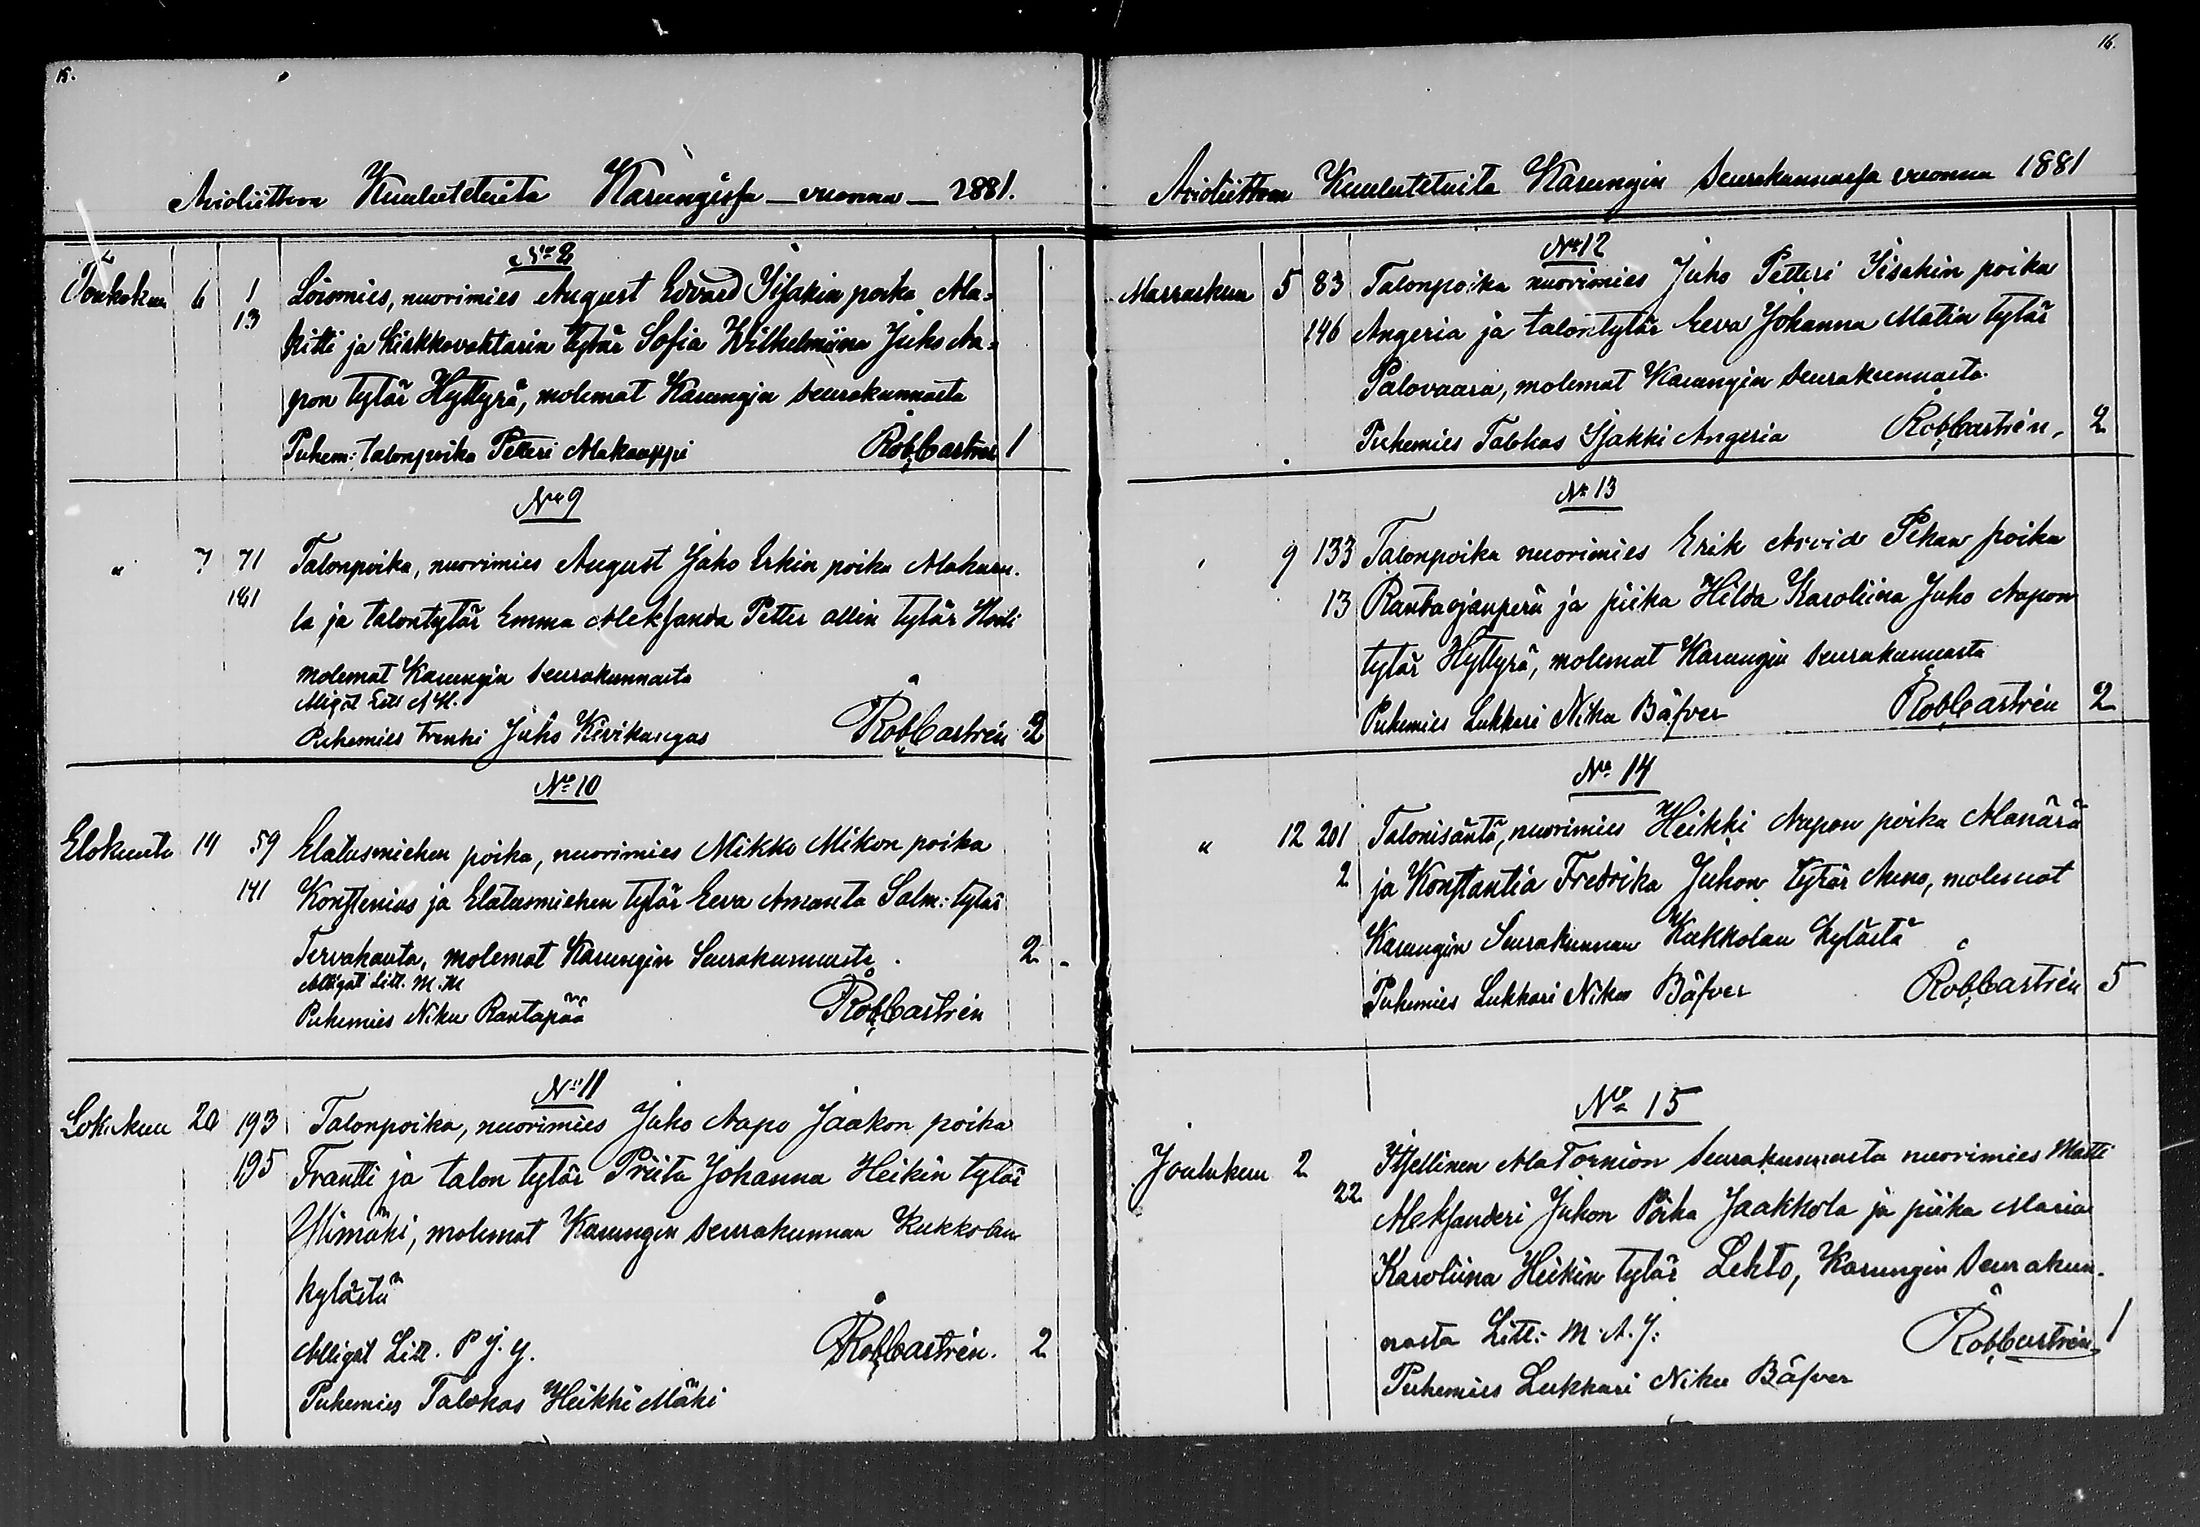 15.
Avioliittoon Kuulutetuita Karungissa - vuonna - 1881.
No 8
Toukokuu 6 1 Loismies, nuorimies August Edvard Iisakin poika Ala=
13 kitti ja kirkkovahtarin tytär Sofia Wilhelmiina Juho Aa=
pon tytär Hyttyrä, molemat Karungin seurakunnasta
Puhem: talonpoika Petteri Alakauppi Rob Castrén 1
No 9
" 7 71 Talonpoika, nuorimies August Juho Erkin poika
181 la ja talontytär Emma Aleksanda Petter ollin tytär
molemat Karungin seurakunnasta
Puhemies Juho Kivikangas Rob Castrén 2
No 10
Elokuuta 14 59 Elätusmiehen poika, nuorimies Mikko Mikon poika
141 Konstenius ja Elätusmiehen tytär Eeva Amanta Salm: tytär
Tervahauta, molemat Karungin Seurakunnasta. 2 -
Alligat Litt. M. M
Puhemies Niku Rantapää Rob Castrén
No 11
Lokakuu 20 193 Talonpoika, nuorimies Juho Aapo Jaakon poika
195 Frantti ja talon tytär Priita Johanna Heikin tytär
Ylimäki, molemat Karungin seurakunnan Kukkolan
kylästä
Alligat Litt. P. J. Y. Rob Castrén. 2
Puhemies Talokas Heikki Mäki
16.
Avioliittoon Kuulutetuita Karungin Seurakunnassa vuonna 1881
No 12
Marraskuu 5 83 Talonpoika nuorimies Juho Petteri Iisakin poika
146 Angeria ja talontytär Eeva Johanna Matin tytär
Palovaara, molemat Karungin seurakunnasta.
Puhemies Talokas Isakki Angeria Rob Castrén, 2
No 13
" 9 133 Talonpoika nuorimies Erik Arvid Pekan poika
13 Rautaojanperä ja piika Hilda Karoliina Juho Aapon
tytär Hyttyrä, molemat Karungin seurakunnasta
Puhemies Lukkari Niku Bäfver Rob Castrén 2
No 14
" 12 201 Talonisäntä, nuorimies Heikki Aapon poika Alanärä
2 ja Konstantia Fredrika Juhon tytär Aumo, molemat
Karungin Seurakunnan Kukkolan kylästä
Puhemies Lukkari Niku Bäfver Rob Castrén 5
No 15
Joulukuu 2 Itsellinen AlaTornion seurakunnasta nuorimies Matti
22 Aleksanderi Juhon Poika Jaakkola ja piika Maria
Karoliina Heikin tytär Lehto, Karungin Seurakun-
nasta Litt: M. A. J: Rob Castrén 1
Puhemies Lukkari Niku Bäfver